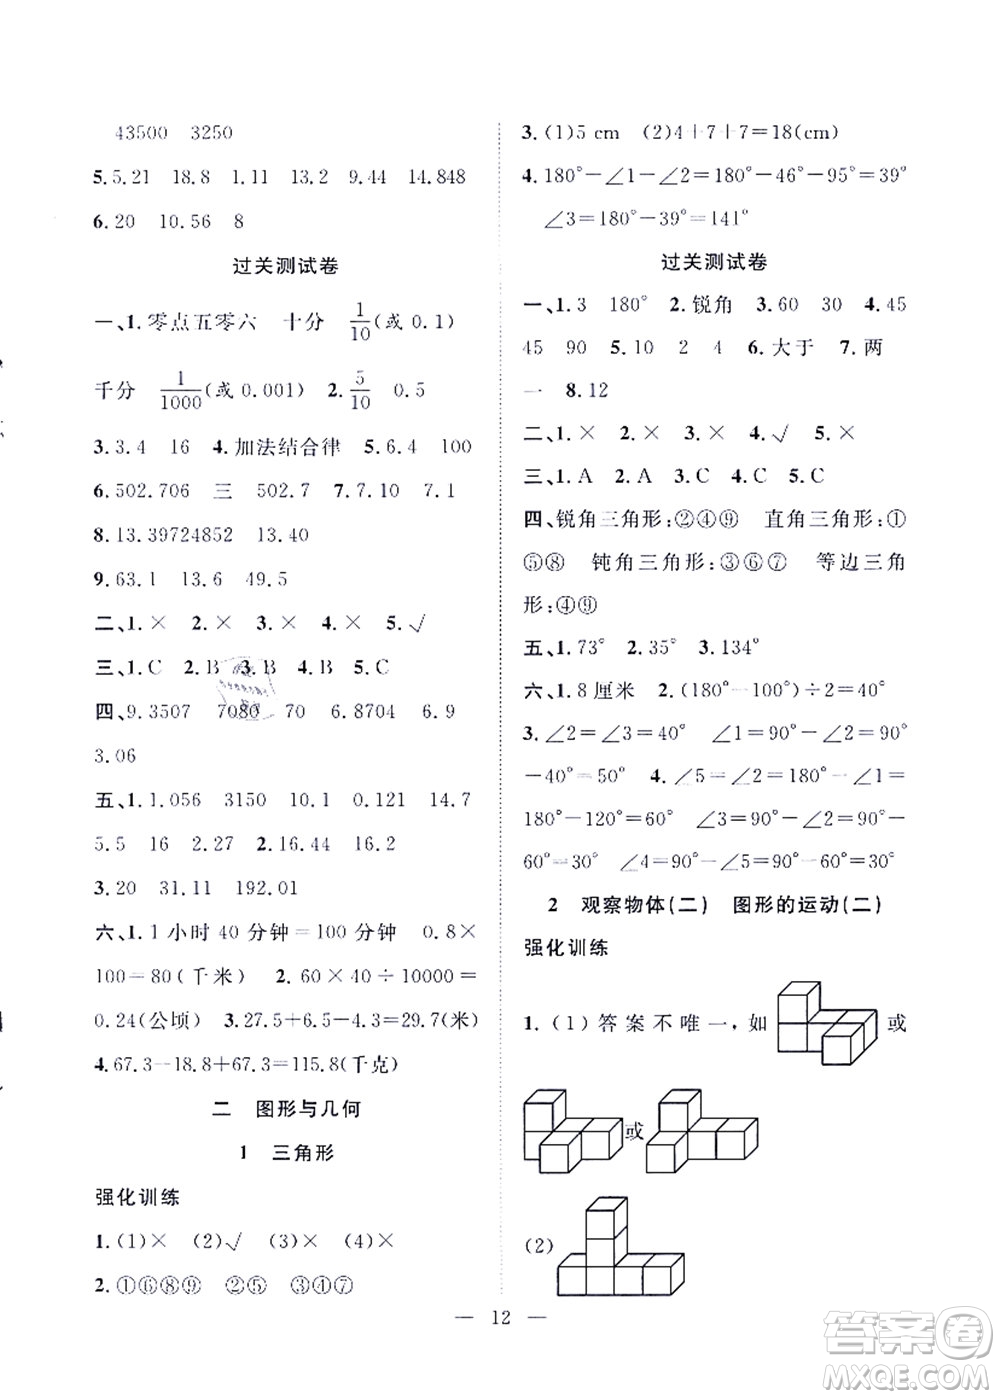 43500 3250
5.5.21 18.8 1.11 13.2 9.44 14.848
6.20 10.56 8
过关测试卷
一、1.零点五零六 十分 1/10(或 0.1)
千分 1/1000(或 0.001) 2.5/10 0.5
3.3.4 16 4.加法结合律 5.6.4 100
6.502.706 三 502.7 7.7.10 7.1
8.13.39724852 13.40
9.63.1 13.6 49.5
二、1.× 2.× 3.× 4.× 5.√
三、1.C 2.B 3.B 4.B 5.C
四、9.3507 7080 70 6.8704 6.9
3.06
五、1.1.056 3150 10.1 0.121 14.7
5.5 16 2.27 2.16.4 3.4 2.4
3.20 31.11 192.01
六、1.1 小时 40 分钟=100 分钟 0.8×
100=80(千米) 2.60×40÷10000=
0.24(公顷) 3.27.5+6.5-4.3=29.7(米)
4.67.3-18.8+67.3=115.8(千克)
二 图形与几何
1 三角形
强化训练
1.(1)× (2)√ (3)× (4)×
2.①⑥⑧⑨ ②⑤ ③④⑦
3.(1)5 cm (2)4+7+7=18(cm)
4.180°-∠1-∠2=180°-46°-95°=39°
∠3=180°-39°=141°
过关测试卷
一、1.3 180° 2.锐角 3.60 30 4.45
45 90 5.10 2 4 6.大于 7.两
一 8.12
二、1.× 2.× 3.× 4.√ 5.×
三、1.A 2.A 3.C 4.C 5.C
四、锐角三角形:②④⑨ 直角三角形:①
⑤⑧ 钝角三角形:③⑥⑦ 等边三角
形:④⑨
五、1.73° 2.35° 3.134°
六、1.8厘米 2.(180°-100°)÷2=40°
3.∠2=∠3=40° ∠1=90°-∠2=90°
-40°=50° 4.∠5=∠2=180°-∠1=
180°-120°=60° ∠3=90°-∠2=90°-
60°=30° ∠4=90°-∠5=90°-60°=30°
2 观察物体(二) 图形的运动(二)
强化训练
1.(1)答案不唯一,如 或
或
(2)
12
答案卷
MXQE.COM